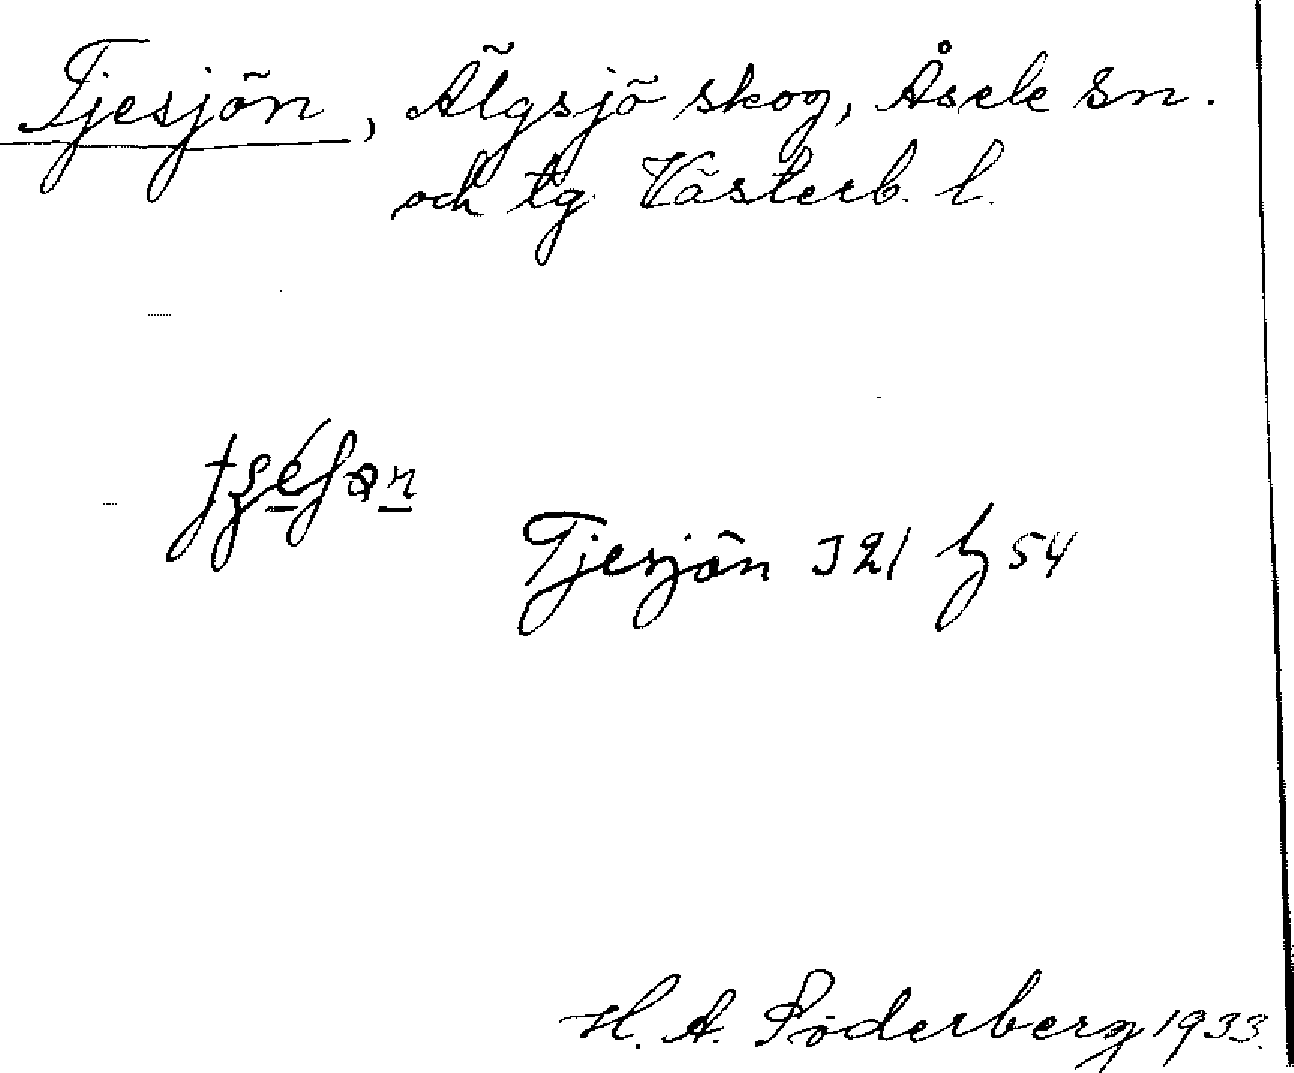 Tjesjön, Älgsjö skog, Åsele sn.
och tg. Västerb. l.
Tjesjön J21 h 54
H. A. Söderberg 1933.